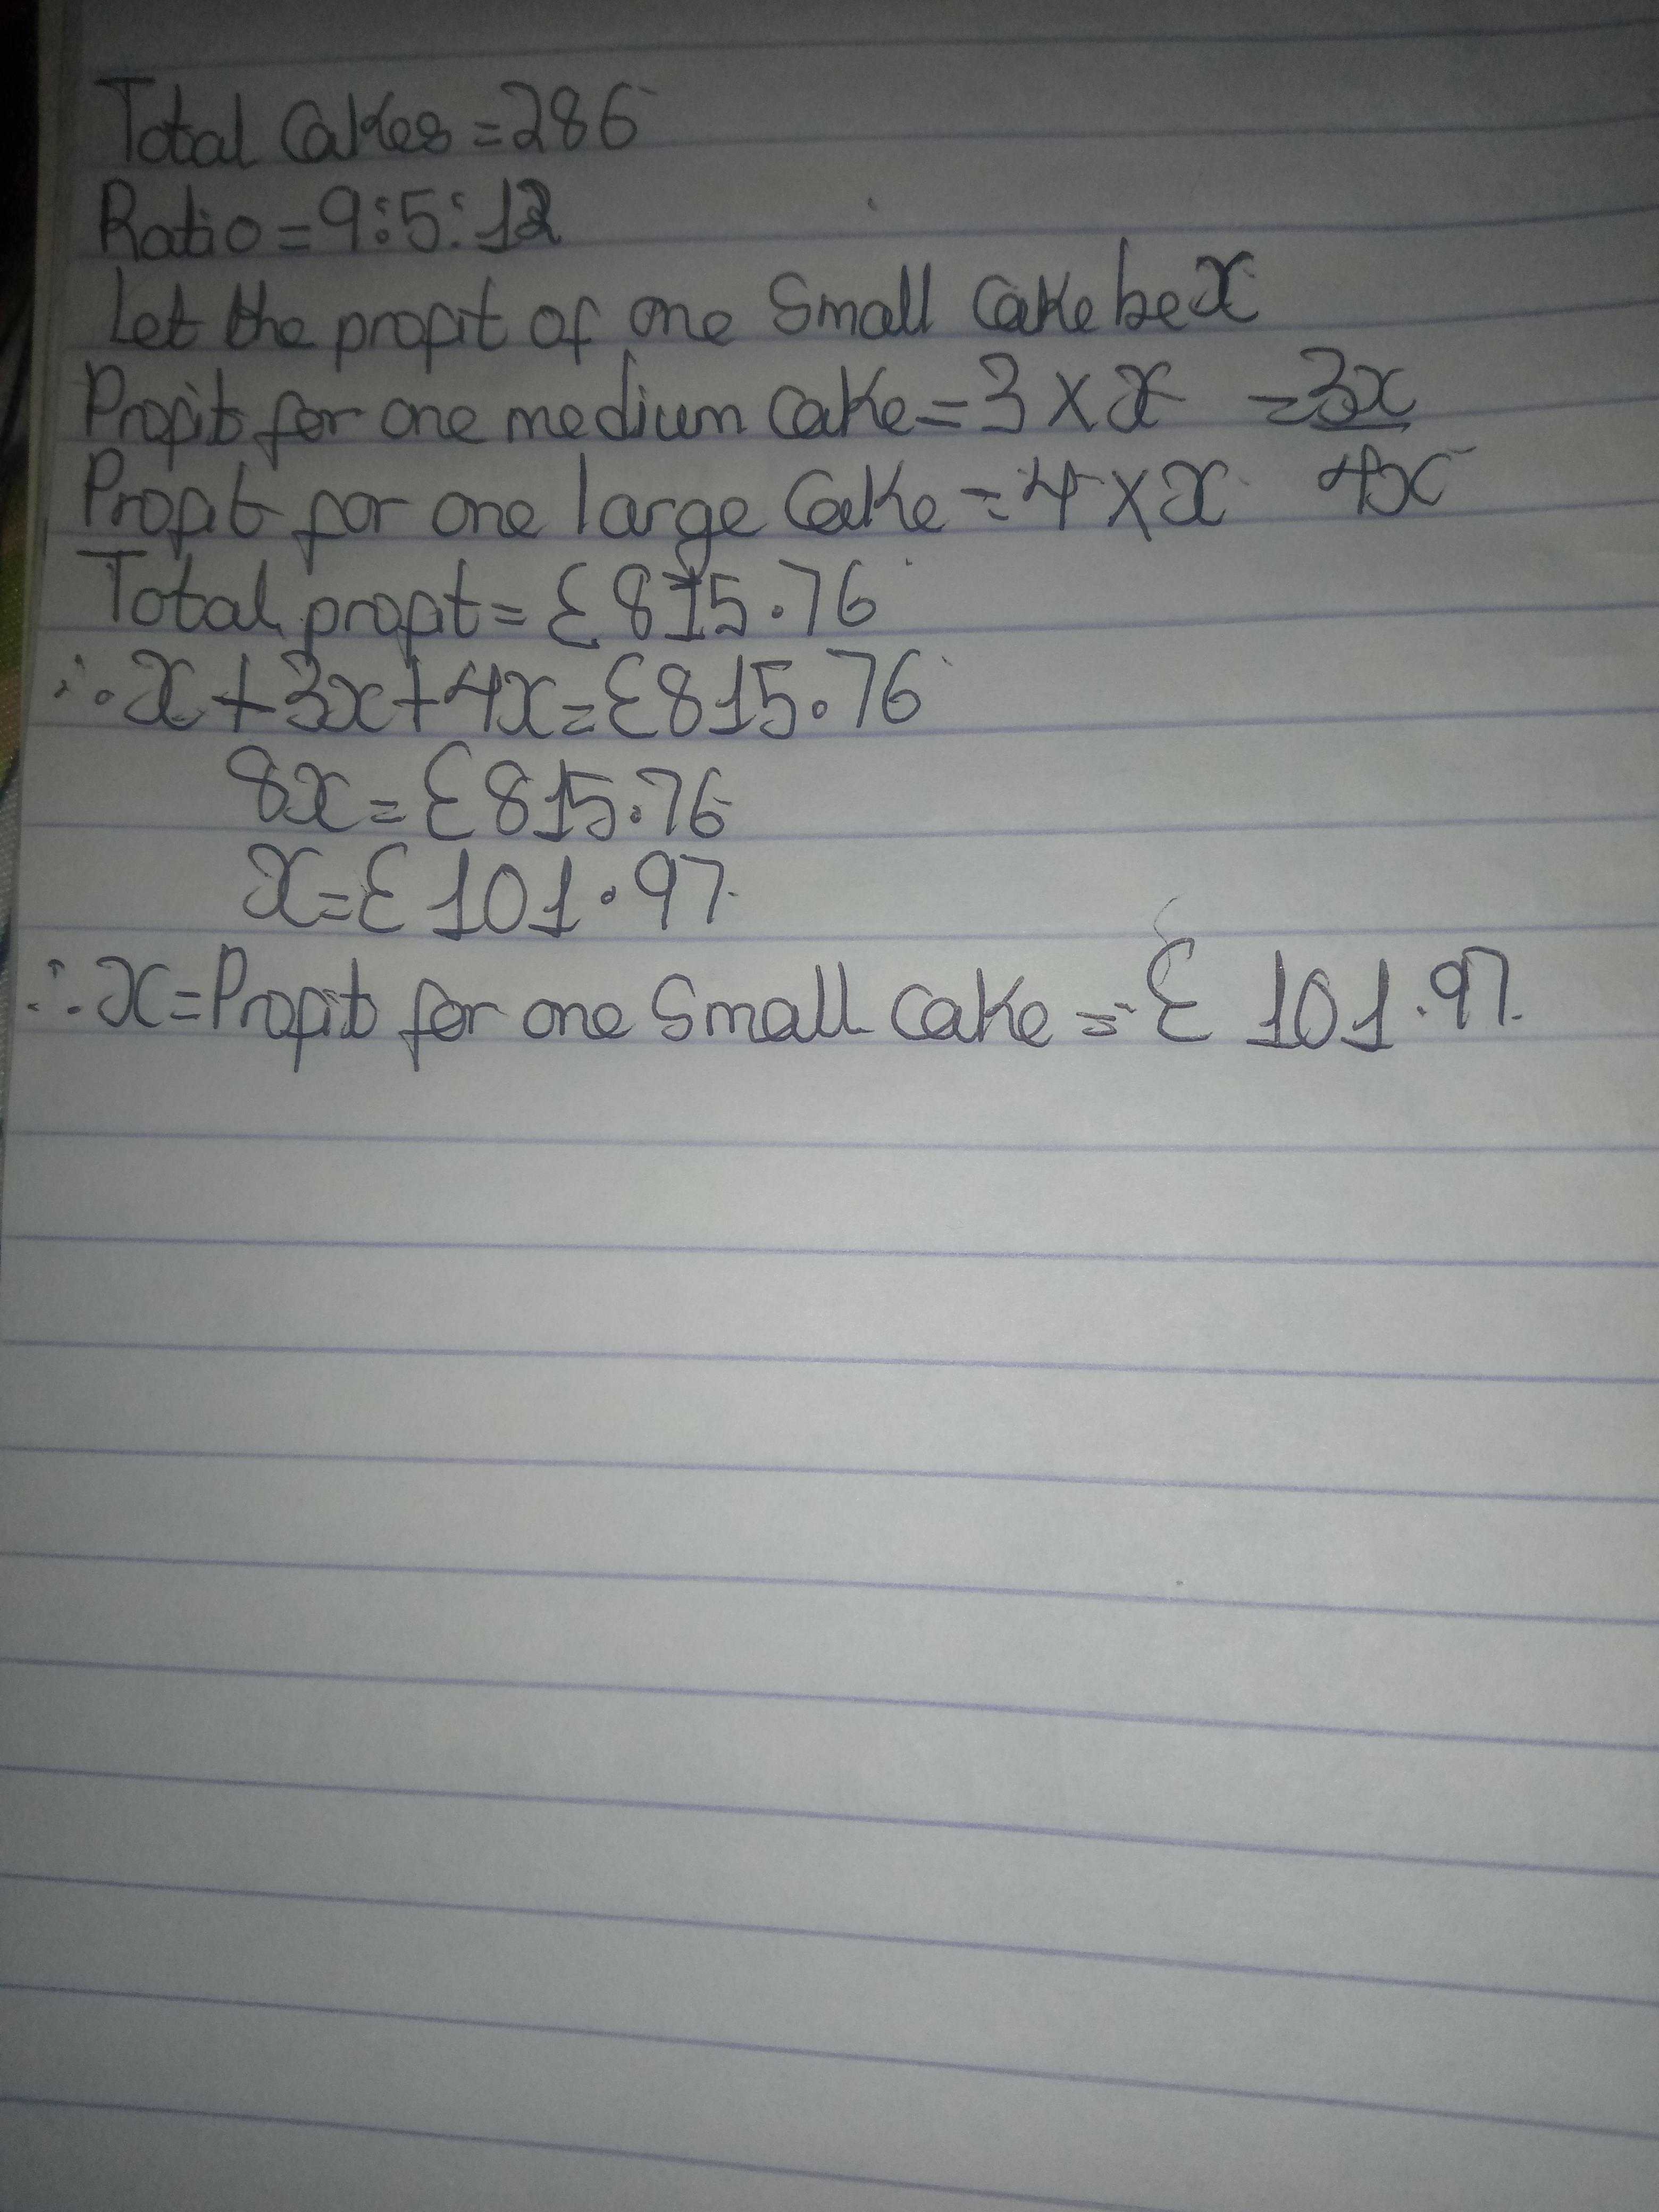 Total Cakes = 286
Ratio = 9:5:12
Let the profit of one Small Cake be x
Profit for one medium Cake = 3 × x = 3x
Profit for one large Cake = 4 × x 4x
Total profit = £815.76
∴ x + 3x + 4x = £815.76
8x = £815.76
x = £101.97
∴ x = Profit for one Small Cake = £101.97.